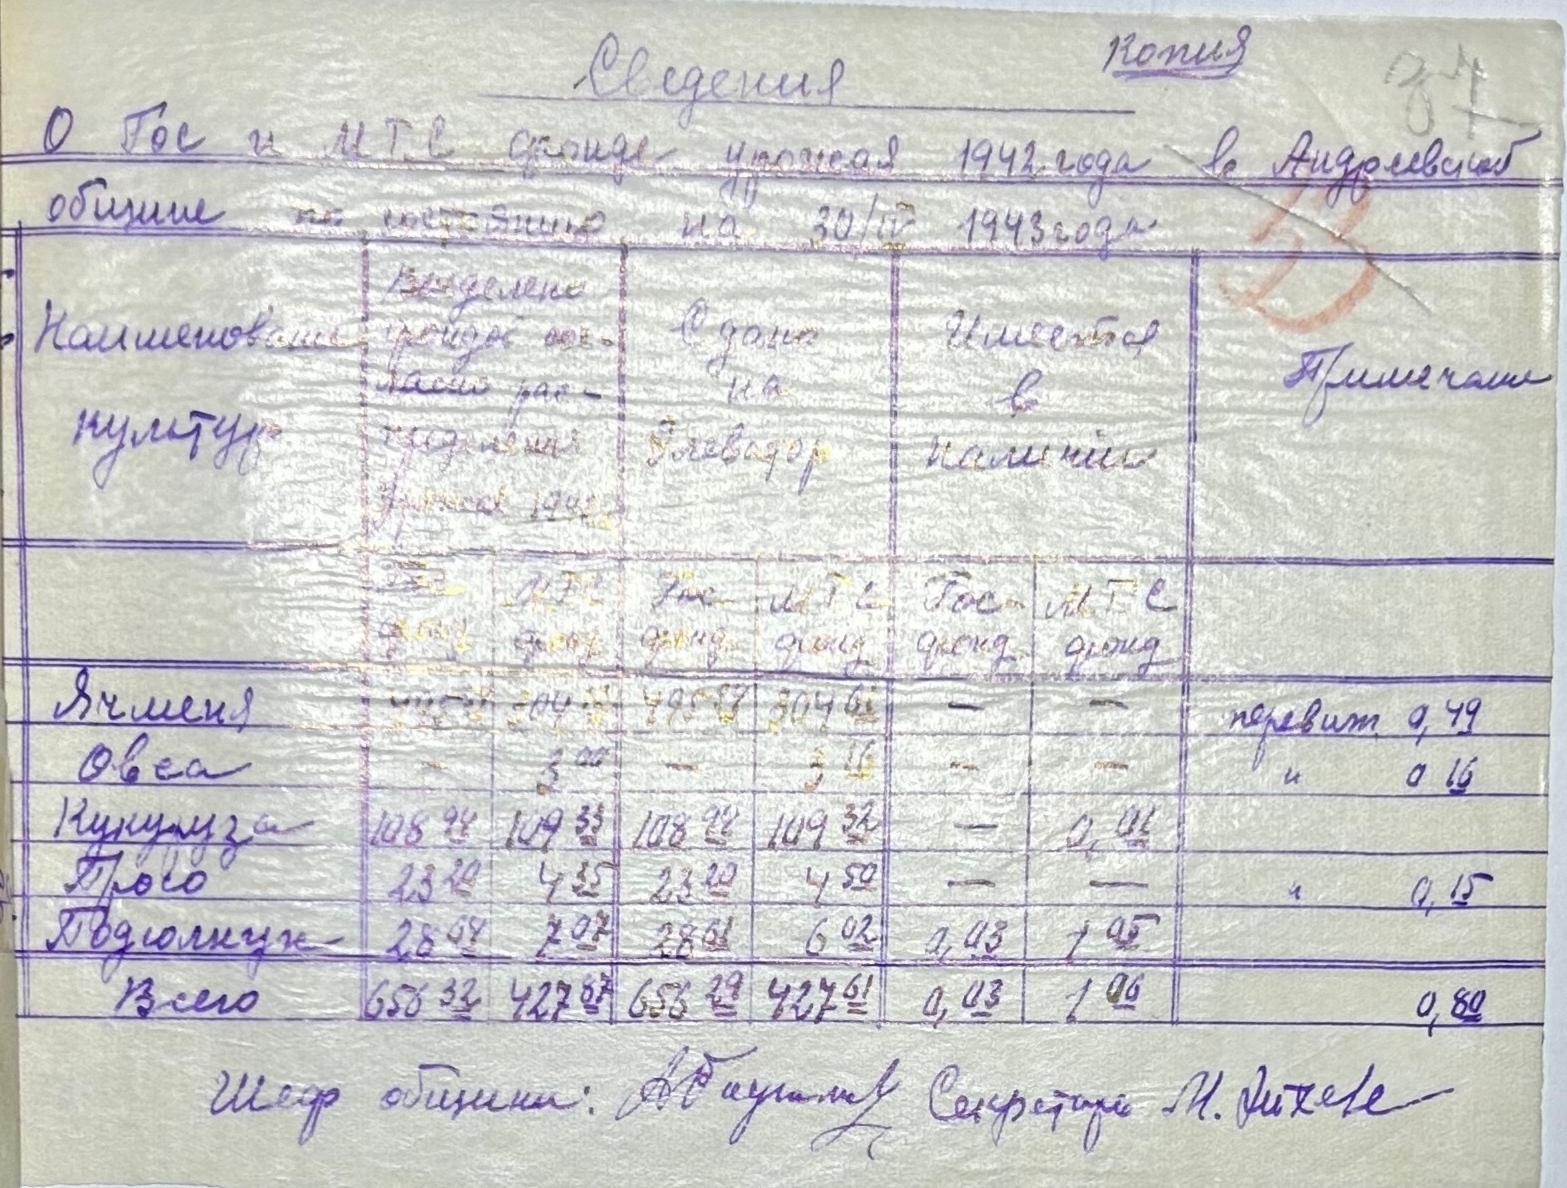 Копия
87
Сведения
О Гос и МТС фонде урожая 1942 года в Андреевской
общине по состоянию на 30/IV 1943 года
Наименование культур | Выделено фондов согласно распределения Урожая 1942 | Сдано на Элеватор | Имеется в наличии | Примечание
Гос фонд | МТС фонд | Гос фонд | МТС фонд | Гос фонд | МТС фонд
Ячменя | 304 | 495 | 304 61 | — | — | перевып 0,49
Овса | — | 3 00 | — | 3 16 | — | — | " 0 16
Кукуруза | 108 94 | 109 33 | 108 94 | 109 32 | — | 0,01
Просо | 23 20 | 4 35 | 23 20 | 4 50 | — | — | " 0,15
Подсолнух | 28 64 | 7 07 | 28 61 | 6 02 | 0,03 | 1 05
Всего | 656 32 | 427 87 | 656 29 | 427 61 | 0,03 | 1 06 | 0,80
Шеф общины: Секретарь М.